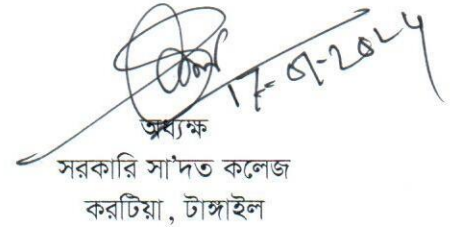 17-01-2024
অধ্যক্ষ
সরকারি সা'দত কলেজ
করটিয়া, টাঙ্গাইল